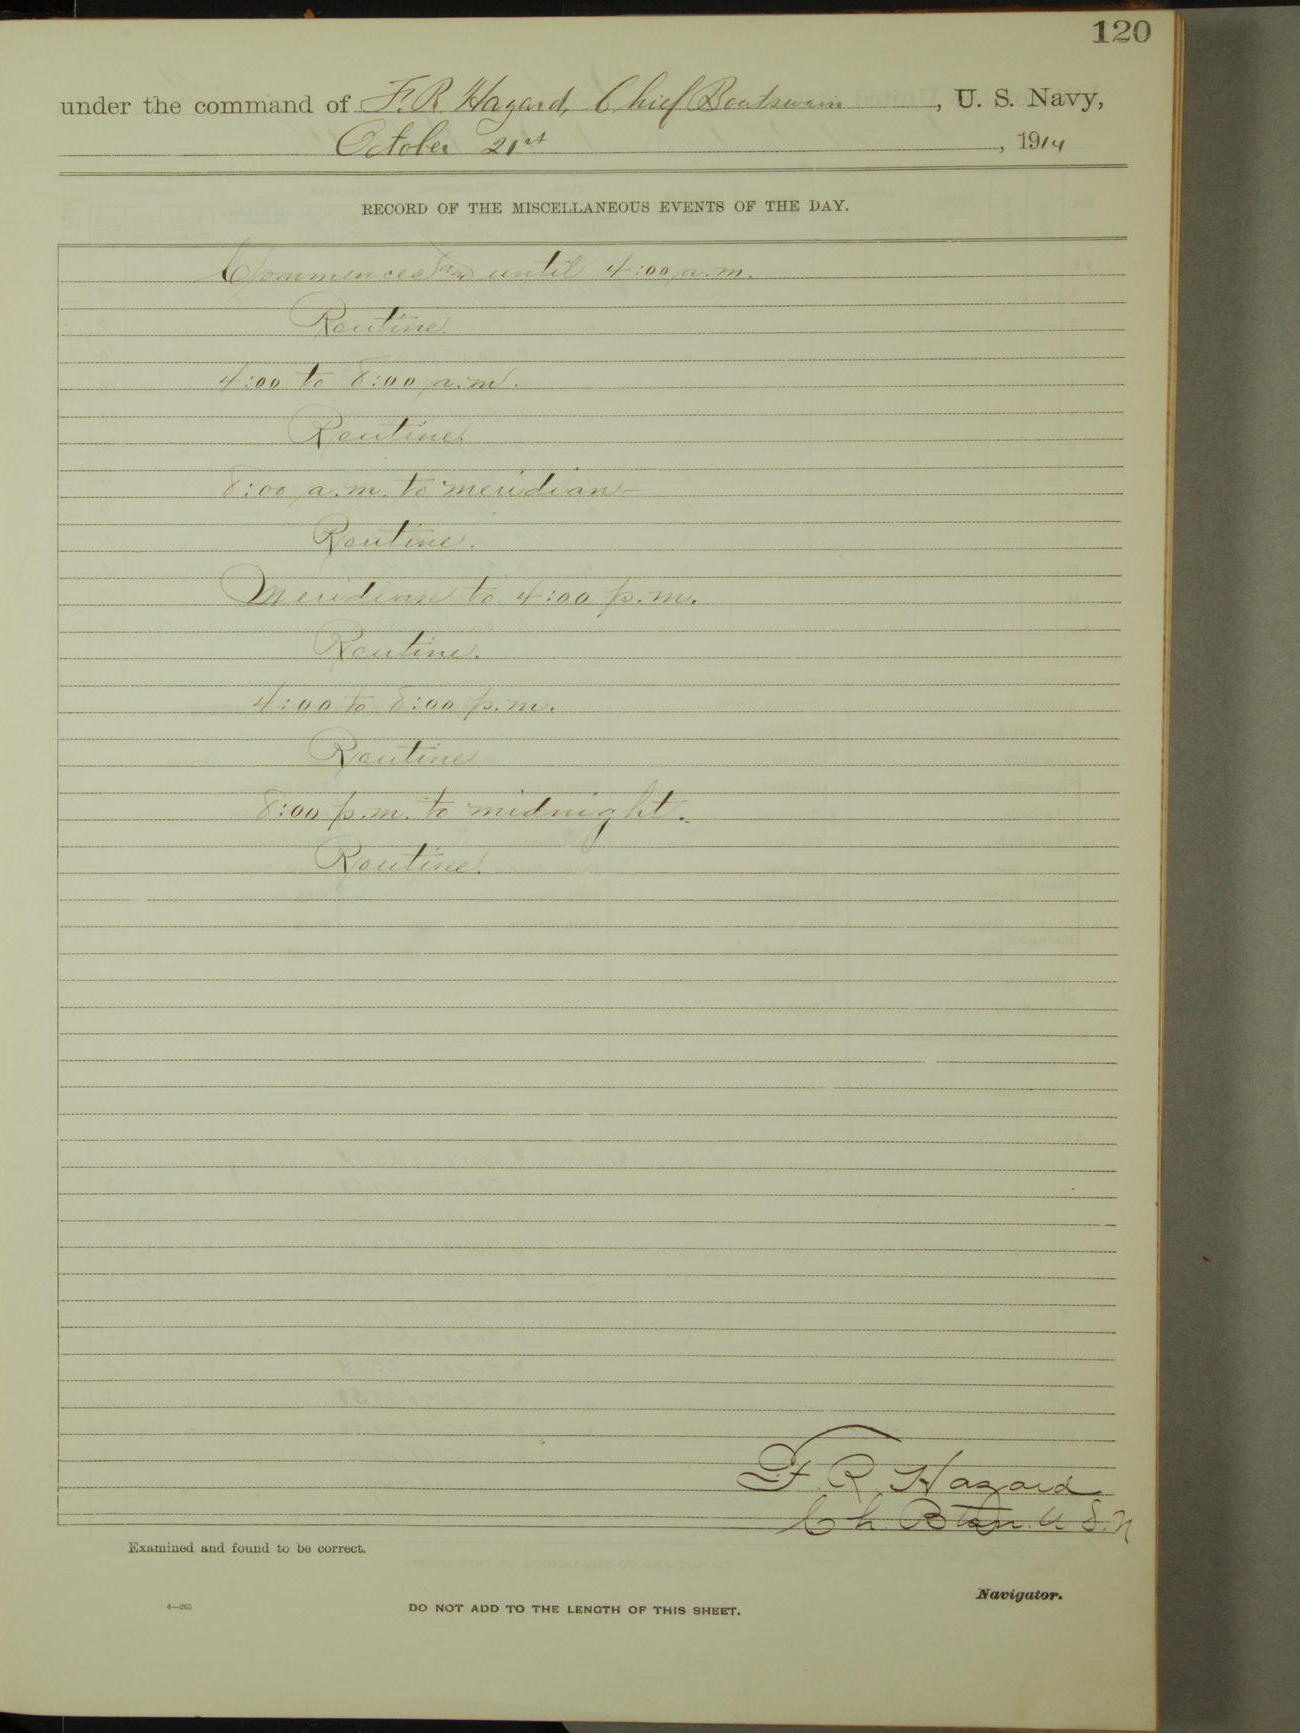 120
under the command of F. R. Hazard, Chief Boatswain, U. S. Navy,
October 21st, 1914
RECORD OF THE MISCELLANEOUS EVENTS OF THE DAY.
Commences and until 4:00 a.m.
Routine.
4:00 to 8:00 a.m.
Routine.
8:00 a.m. to meridian
Routine.
Meridian to 4:00 p.m.
Routine.
4:00 to 8:00 p.m.
Routine
8:00 p.m. to midnight.
Routine.
F. R. Hazard
Ch. Btsn. U. S. N
Examined and found to be correct.
Navigator.
4—265
DO NOT ADD TO THE LENGTH OF THIS SHEET.